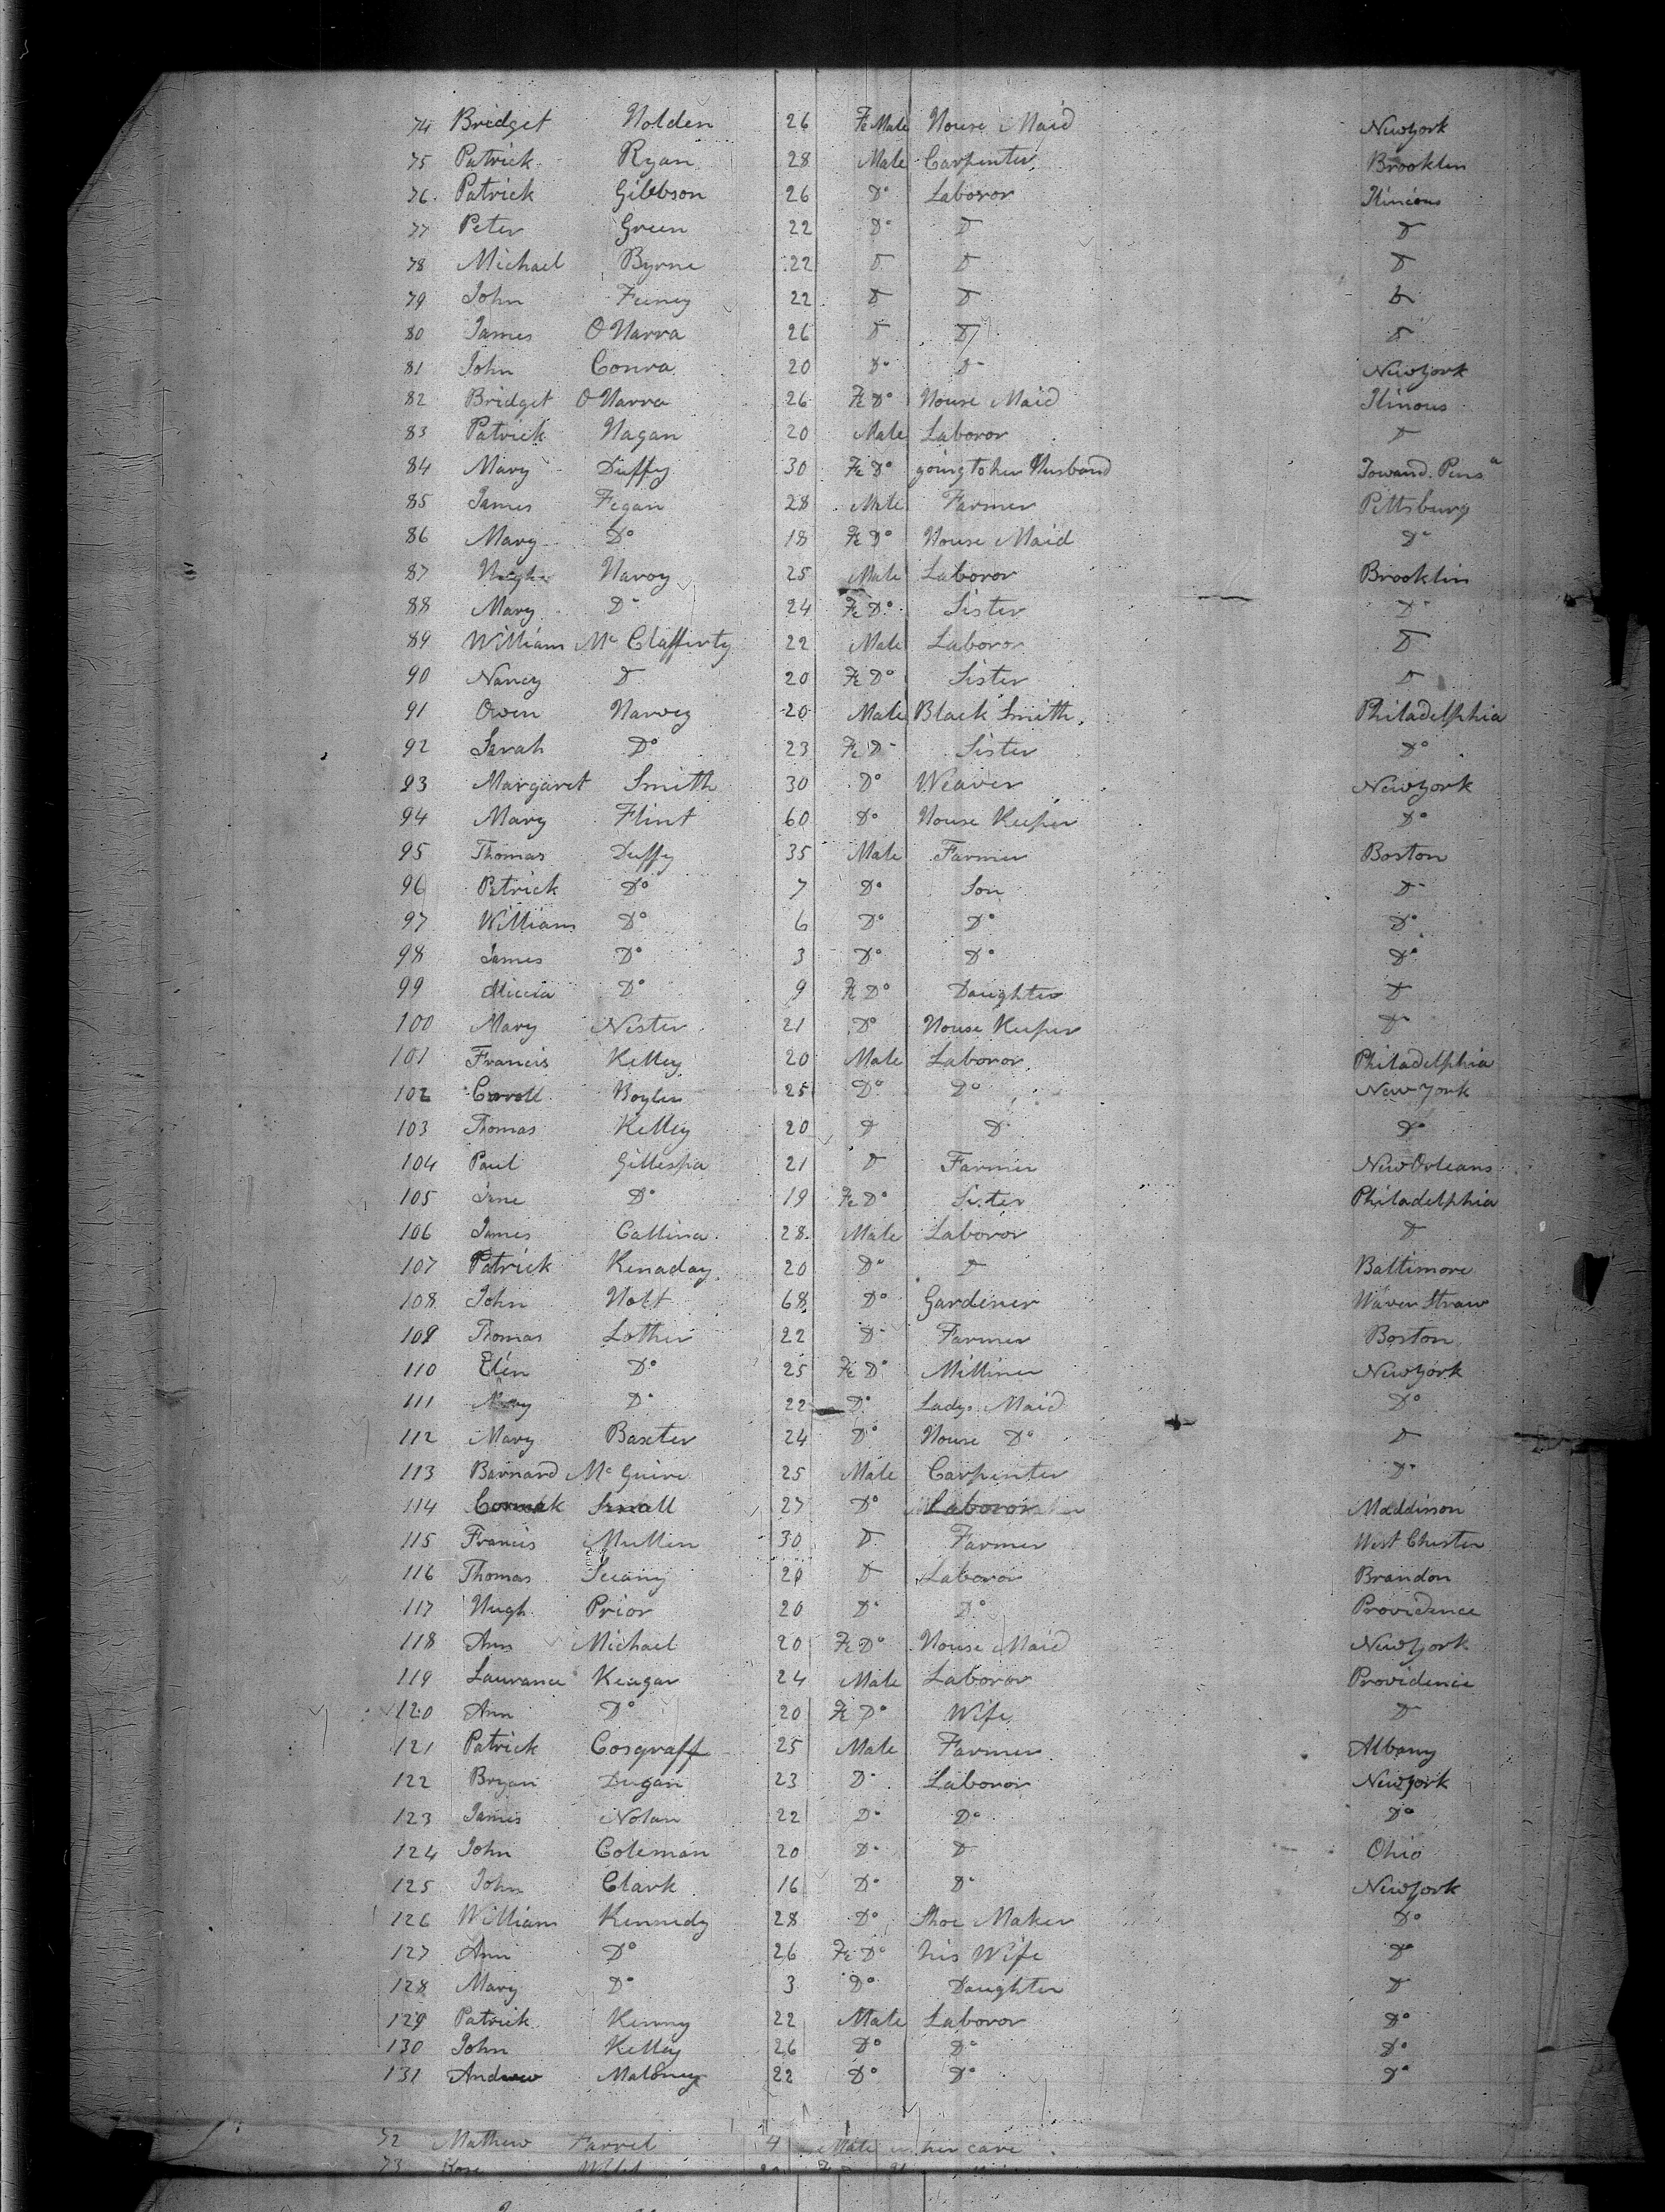 74 Bridget Holden 26 Fe Male House Maid Newyork
75 Patrick Ryan 28 Male Carpenter Brooklin
76 Patrick Gibbson 26 Do Laboror Ilinious
77 Peter Green 22 Do D D
78 Michael Byrne 22 D D D
79 John Feeney 22 D D D
80 James O Harra 26 D D D
81 John Conra 20 Do Do Newyork
82 Bridget O Harra 26 Fe Do House Maid Ilinous
83 Patrick Hagan 20 Male Laboror D
84 Mary Duffy 30 Fe Do going to her Husband Towand. Pensa
85 James Fegan 28 Male Farmer Pittsburg
86 Mary Do 18 Fe Do House Maid Do
87 Hugh Harvy 25 Male Laboror Brooklin
88 Mary Do 24 Fe Do Sister Do
89 William Mc Clafferty 22 Male Laboror D
90 Nancy D 20 Fe Do Sister D
91 Owen Harvey 20 Male Black Smith Philadelphia
92 Sarah Do 23 Fe Do Sister Do
93 Margaret Smith 30 Do Weaver Newyork
94 Mary Flint 60 Do House Keeper Do
95 Thomas Duffy 35 Male Farmer Boston
96 Patrick Do 7 Do Son Do
97 William Do 6 Do Do Do
98 James Do 3 Do Do Do
99 Alicia Do 9 Fe Do Daughter D
100 Mary Nester 21 Do House Keeper Do
101 Francis Kelley 20 Male Laboror Philadelphia
102 Carroll Boylen 25 Do Do New York
103 Thomas Kelley 20 D D Do
104 Paul Gillespia 21 D Farmer New Orleans
105 Jane Do 19 Fe Do Sister Philadelphia
106 James Callina 28 Male Laboror D
107 Patrick Kenaday 20 Do D Baltimore
108 John Holt 68 Do Gardener Haver Straw
109 Thomas Lother 22 Do Farmer Boston
110 Elen Do 25 Fe Do Milliner Newyork
111 Mary Do 22 Do Ladys Maid Do
112 Mary Baxter 24 Do House Do D
113 Barnard Mc Guire 25 Male Carpenter Do
114 Cormak Small 27 Do Laboror Maddinson
115 Francis Mullin 30 D Farmer West Chester
116 Thomas 20 D Laboror Brandon
117 Hugh Prior 20 Do Do Providence
118 Ann Michael 20 Fe Do House Maid Newyork
119 Laurance Keagan 24 Male Laboror Providence
120 Ann Do 20 Fe Do Wife D
121 Patrick Cosgraff 25 Male Farmer Albany
122 Bryan Dugan 23 Do Laboror Newyork
123 James Nolan 22 Do Do Do
124 John Coleman 20 Do D Ohio
125 John Clark 16 Do Do Newyork
126 William Kennedy 28 Do Shoe Maker Do
127 Ann Do 26 Fe Do his Wife Do
128 Mary Do 3 Do Daughter D
129 Patrick Kenny 22 Male Laboror Do
130 John Kelley 26 Do Do Do
131 Andrew Maloney 22 Do Do Do
72 Mathew Farrel 4 Male in her care
73 Rose